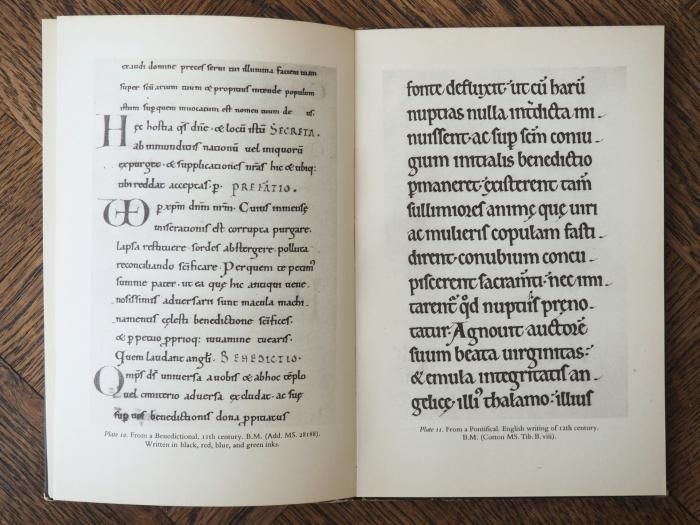 exaudi domine preces serui tui illumina faciem tuam
super scm̄ arium tuum & propitius intende populum
istum sup quem inuocatum est nomen tuum de us.
Hęc hostia qs dn̄e · & locū istū SECRETA.
ab inmundiciis nationū uel iniquorū
expurg& · & supplicationes nr̄as hic & ubiq;
ubi reddat acceptas · p · PREFATIO ·
p xp̄m dnm̄ nrm̄ · Cuius inmensę
miserationis est corrupta purgare ·
lapsa restituere · sordes abstergere · polluta
reconciliando scīficare · Per quem te petim'
summe pater · ut ea quę hic antiqui uene
nosissimi aduersarii sunt macula machi
namentis cęlesti benedictione scīfices ·
& p petuo pprioq; iuuamine tuearis ·
Quem laudant angli · BENEDICTIO ·
Omps ds̄ uniuersa a uobis & ab hoc tēplo
uel cimiterio aduersa excludat · ac suę
sup uos benedictionis dona ppitiatus
Plate 10. From a Benedictional. 11th century. B.M. (Add. MS. 28188).
Written in black, red, blue, and green inks.
fonte defluxit · ut cū harū
nuptias nulla int̄dicta mi
nuissent · ac sup sc̄m coniu
gium initialis benedictio
pmaneret · existerent tam̄
sullimiores animę quę uiri
ac mulieris copulam fasti
dirent conubium concu
piscerent sacramt̄i · nec imi
tarent̄ qd̄ nuptiis pręno
tatur · Agnouit auctorē
suum beata uirginitas ·
& emula integritatis an
gelicę · illi' thalamo · illius
Plate 11. From a Pontifical. English writing of 12th century.
B.M. (Cotton MS. Tib. B. viii).